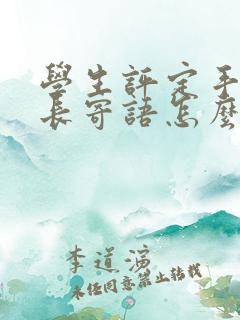 學生評定手
長寄語怎麼
李道濸
未经同意禁止转载